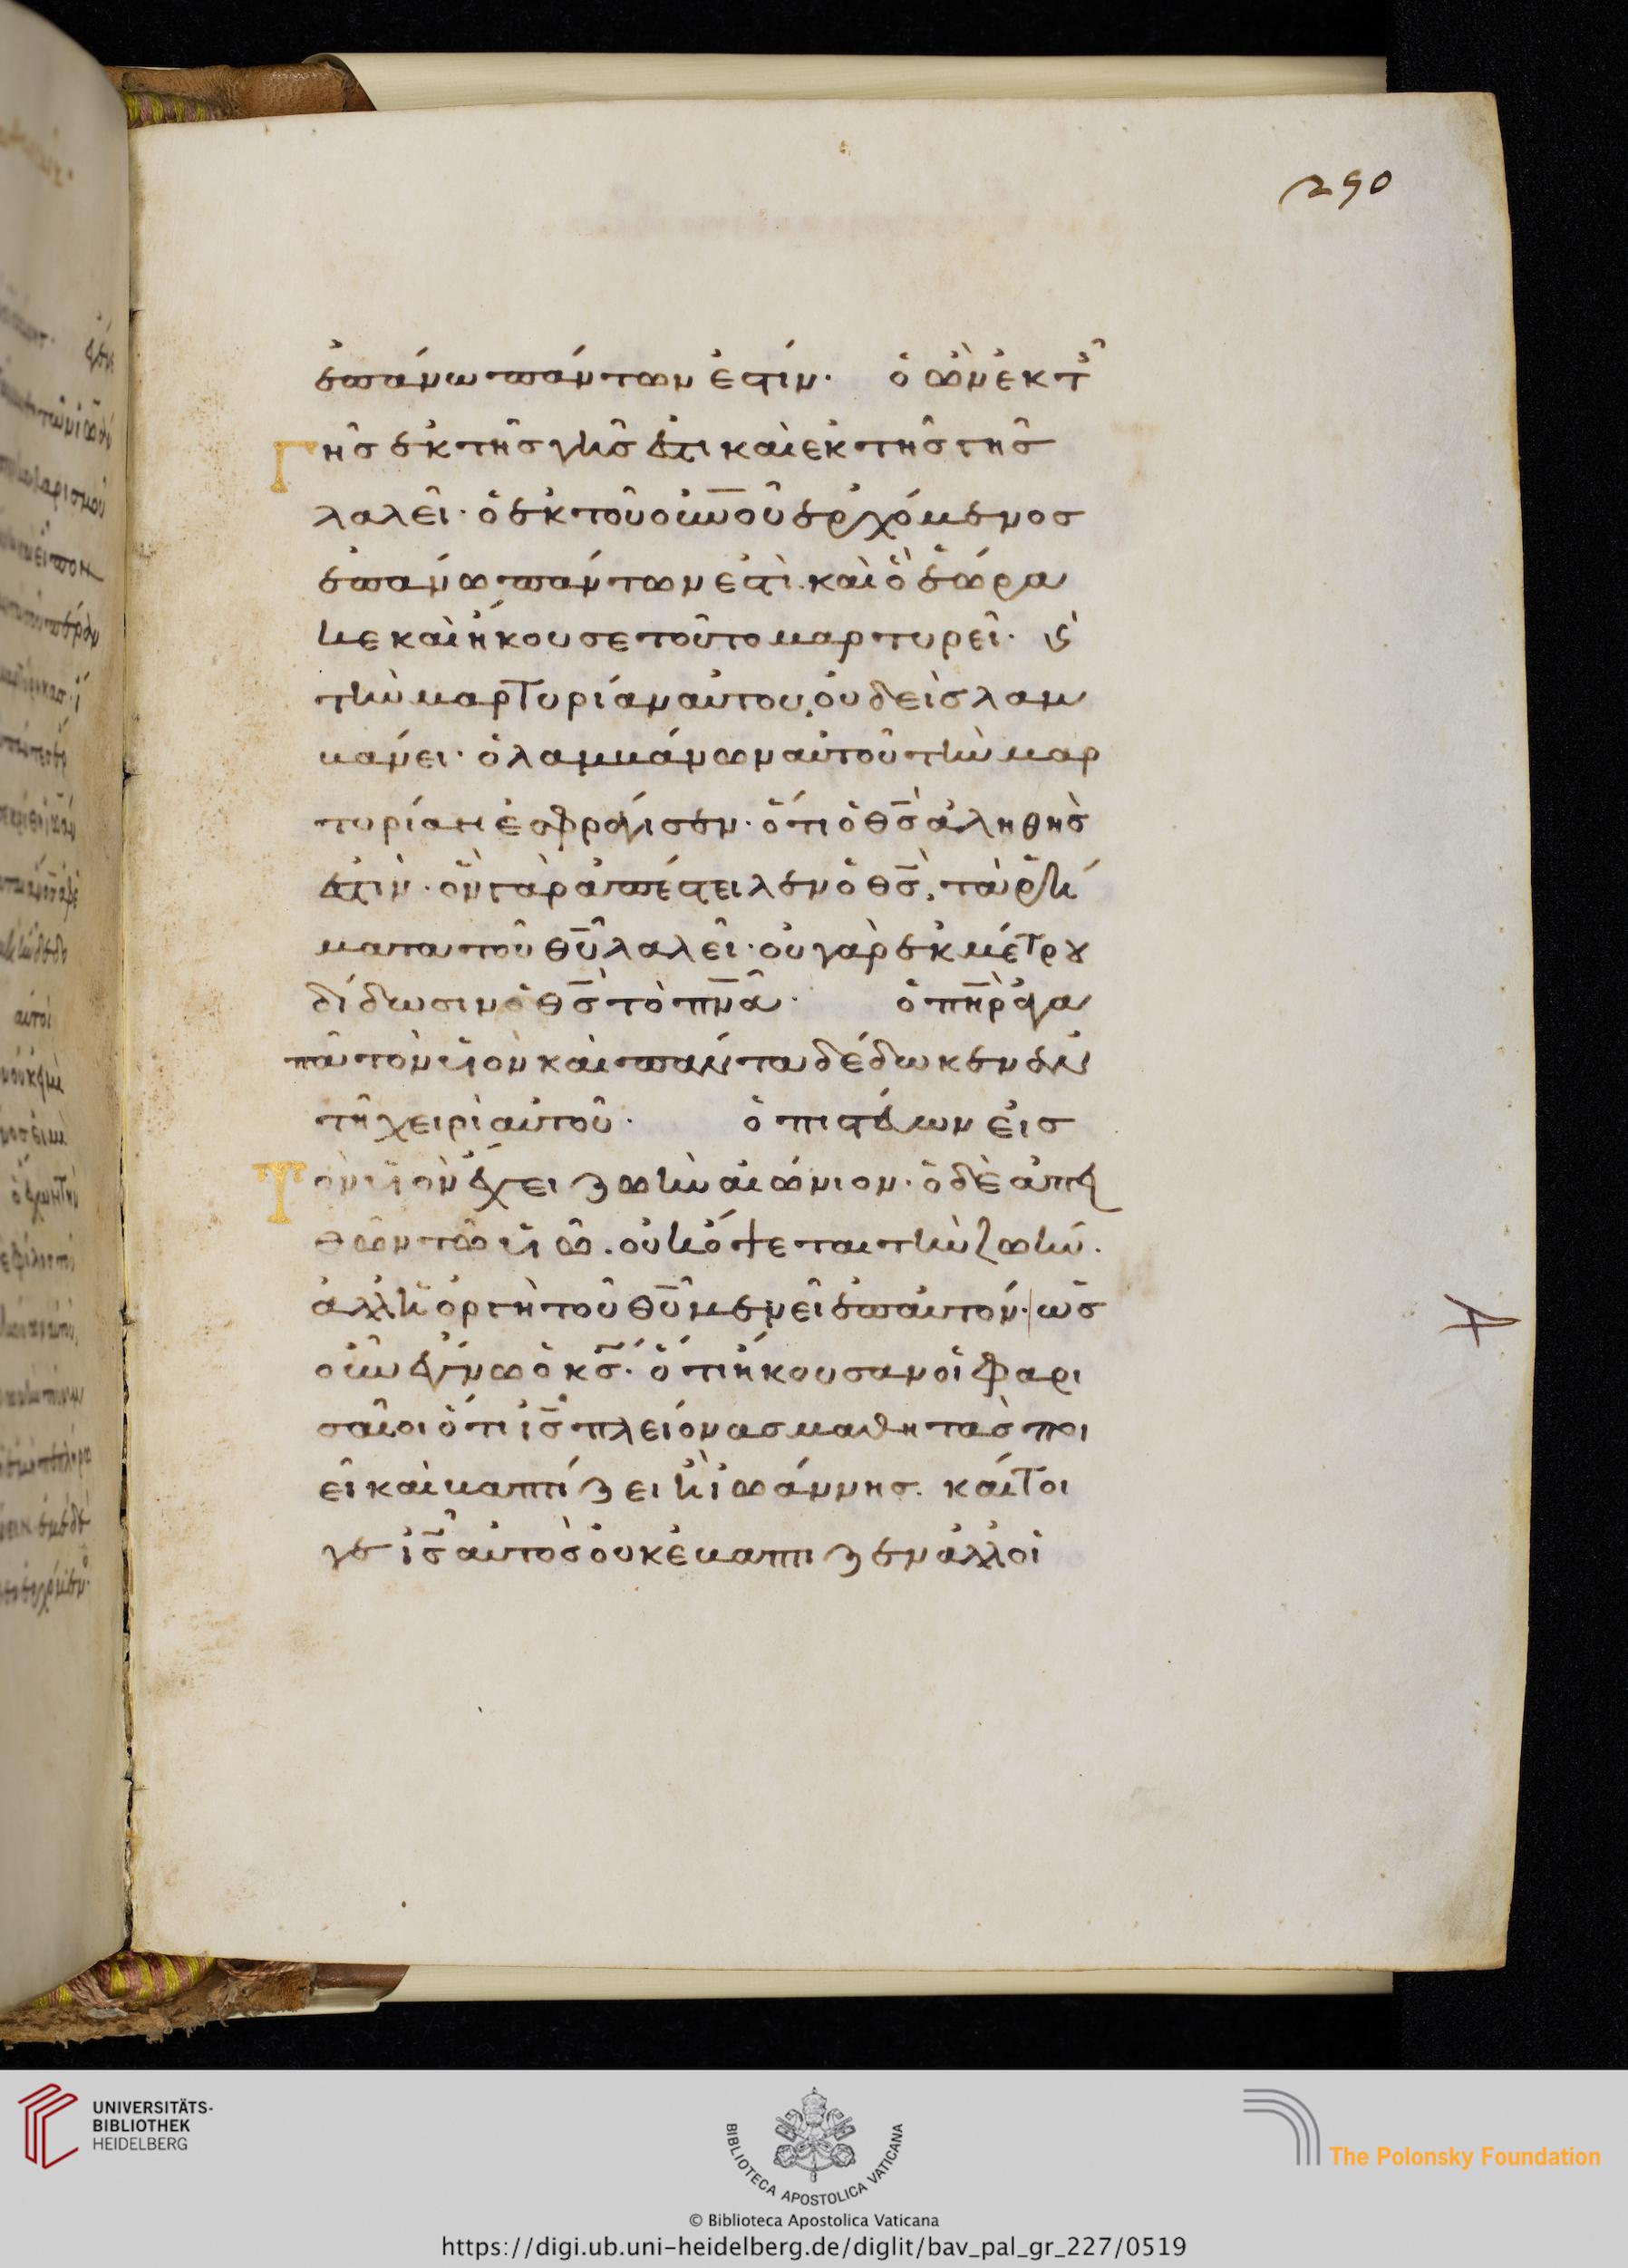 290
ἐπάνω πάντων ἐστίν· ὁ ὢν ἐκ τ
γῆς ἐκ τῆς γῆς ἐστι καὶ ἐκ τῆς γῆς
λαλεῖ· ὁ ἐκ τοῦ οὐνοῦ ἐρχόμενος
ἐπάνω πάντων ἐστὶ· καὶ ὃ ἑώρα
κε καὶ ἤκουσε τοῦτο μαρτυρεῖ· ϗ
τὴν μαρτυρίαν αὐτοῦ, οὐδεὶς λαμ
βάνει· ὁ λαμβάνων αὐτοῦ τὴν μαρ
τυρίαν ἐσφράγισεν· ὅτι ὁ θς ἀληθὴς
ἐστὶν· ὃν γὰρ ἀπέστειλεν ὁ θς, τὰ ῥή
ματα τοῦ θυ λαλεῖ· οὐ γὰρ ἐκ μέτρου
δίδωσιν ὁ θς τὸ πνα· ὁ πηρ ἀγα
πᾶ τὸν υἱὸν καὶ πάντα δέδωκεν ἐν
τῇ χειρὶ αὐτοῦ· ὁ πιστεύων εἰς
Τὸν υἱὸν ἔχει ζωὴν αἰώνιον· ὁ δὲ ἀπει
θῶν τῶ υἱῶ· οὐκ ὄψεται τὴν ζωήν·
ἀλλ' ἡ ὀργὴ τοῦ θυ μενεῖ ἐπ αὐτόν· ὡς
οὖν ἔγνω ὁ κς· ὅτι ἤκουσαν οἱ φαρι
σαῖοι ὅτι ις πλείονας μαθητὰς ποι
εῖ καὶ βαπτίζει ἢ ἰωάννης· καίτοι
γε ις αὐτὸς οὐκ ἐβάπτιζεν ἀλλ οἱ
UNIVERSITÄTS-
BIBLIOTHEK
HEIDELBERG
BIBLIOTECA APOSTOLICA VATICANA
The Polonsky Foundation
© Biblioteca Apostolica Vaticana
https://digi.ub.uni-heidelberg.de/diglit/bav_pal_gr_227/0519